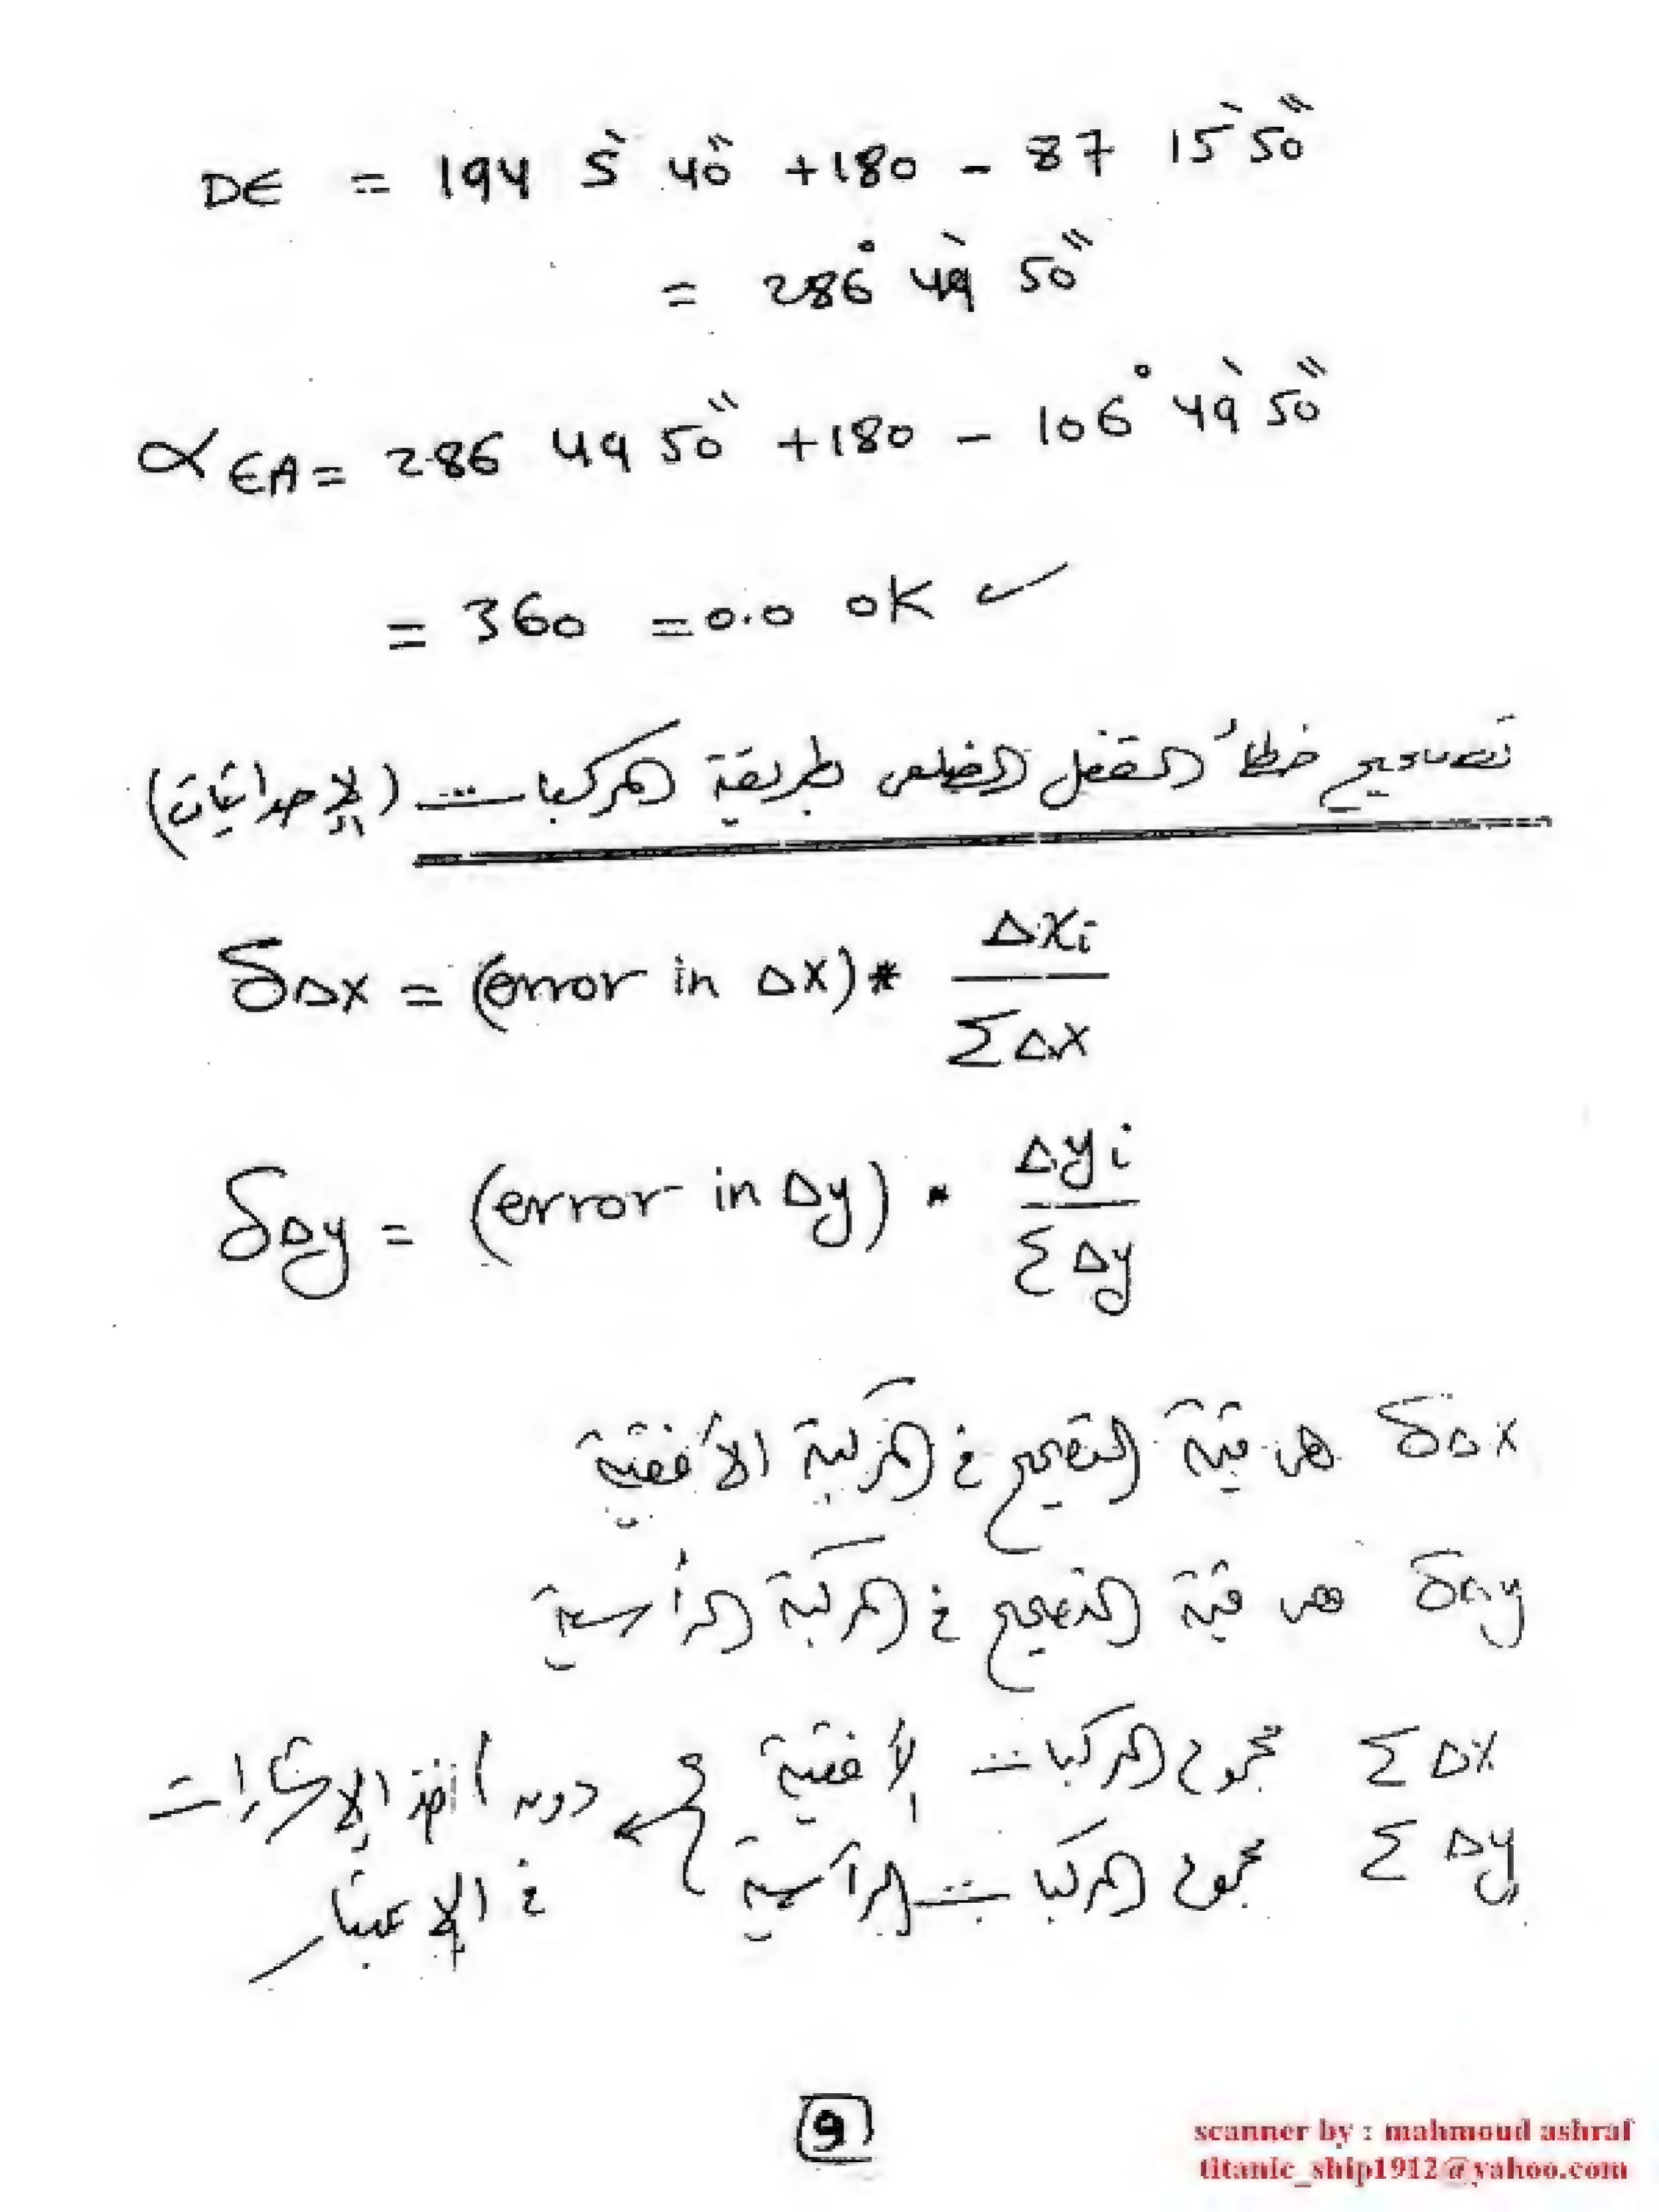 DE = 194 5' 40" + 180 - 87 15' 50"
= 286° 49' 50"
α EA = 286 49 50" + 180 - 106° 49' 50"
= 360 = 0.0 OK ✓
تصحيح خطأ القفل الضلعى بطريقة المركبات (الإحداثيات)
δΔx = (error in Δx) * ΔXi / ΣΔX
δΔy = (error in Δy) * Δyi / ΣΔy
δΔx هى قيمة التصحيح في المركبة الأفقية
δΔy هى قيمة التصحيح في المركبة الرأسية
ΣΔx مجموع المركبات الأفقية } دون أخذ الإشارات
ΣΔy مجموع المركبات الرأسية } في الإعتبار
9
scanner by : mahmoud ashraf
titanic_ship1912@yahoo.com